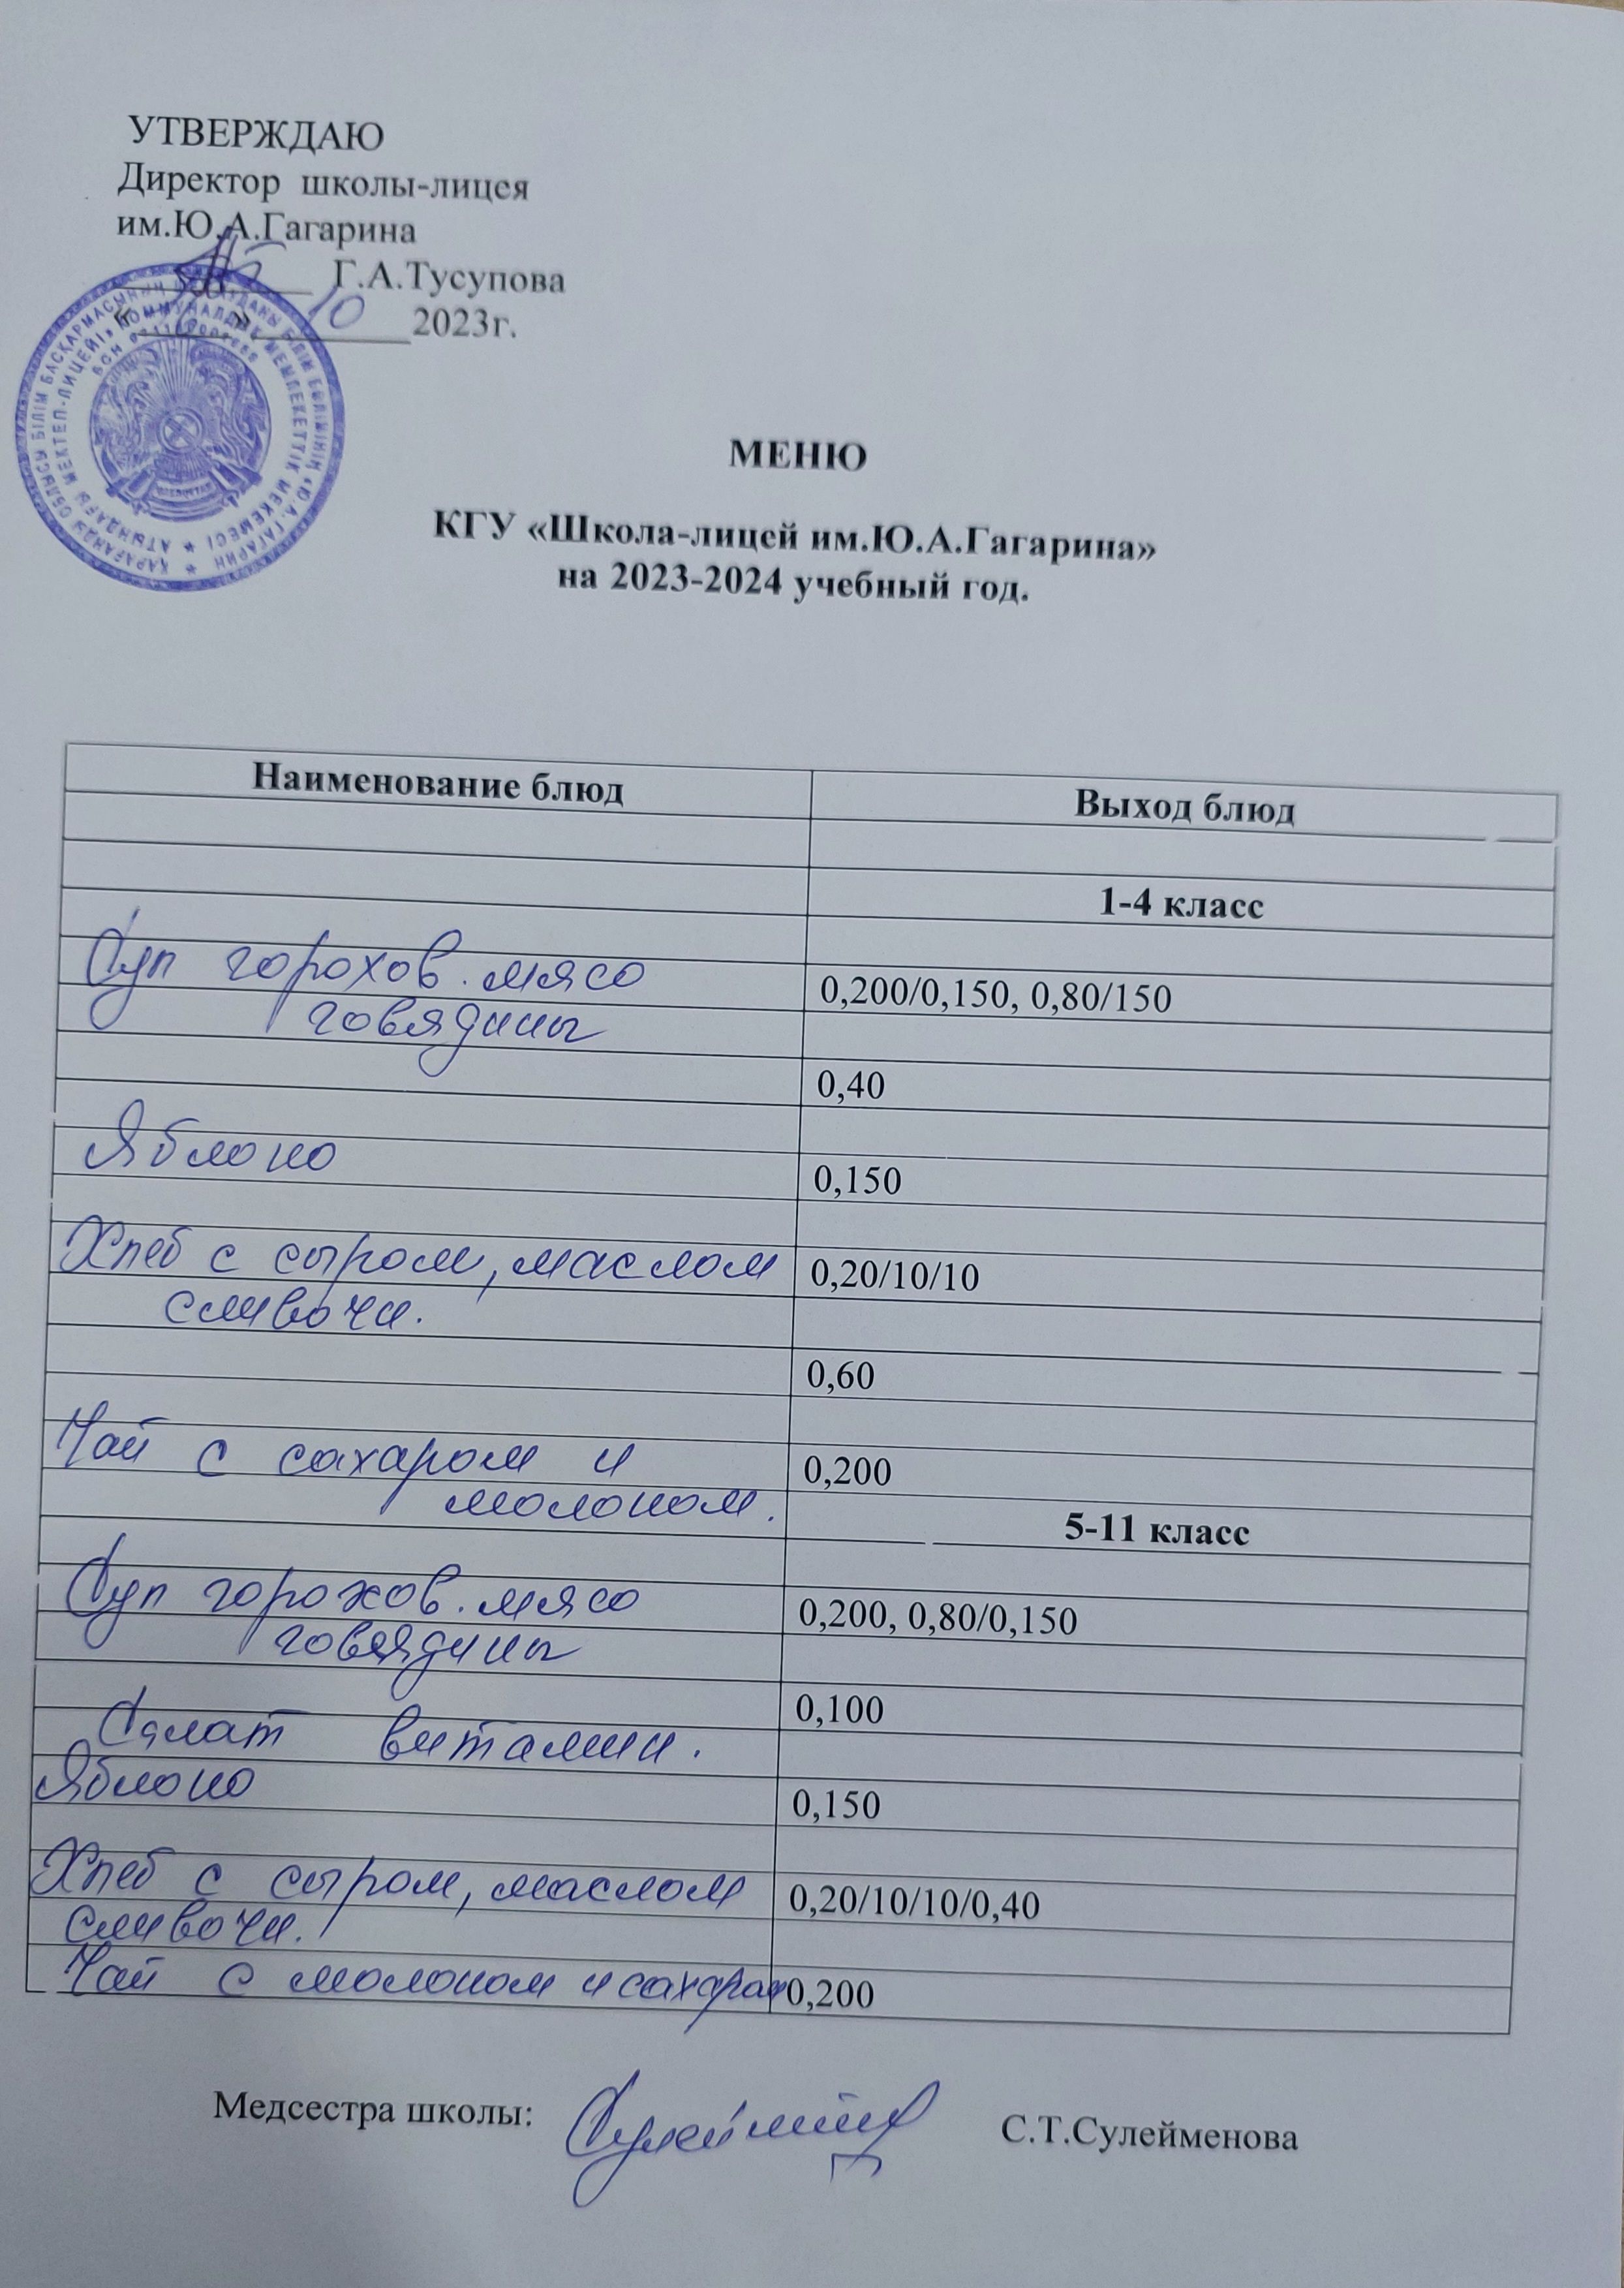 УТВЕРЖДАЮ
Директор школы-лицея
им.Ю.А.Гагарина
Г.А.Тусупова
« » 10 2023г.
МЕНЮ
КГУ «Школа-лицей им.Ю.А.Гагарина»
на 2023-2024 учебный год.
Наименование блюд Выход блюд
1-4 класс
Суп горохов. мясо 0,200/0,150, 0,80/150
говядины
0,40
Яблоко 0,150
Хлеб с сыром, маслом 0,20/10/10
сливочн.
0,60
Чай с сахаром и 0,200
молоком.
5-11 класс
Суп горохов. мясо 0,200, 0,80/0,150
говядины
Салат витамин. 0,100
Яблоко 0,150
Хлеб с сыром, маслом 0,20/10/10/0,40
сливочн.
Чай с молоком и сахаром 0,200
Медсестра школы: С.Т.Сулейменова